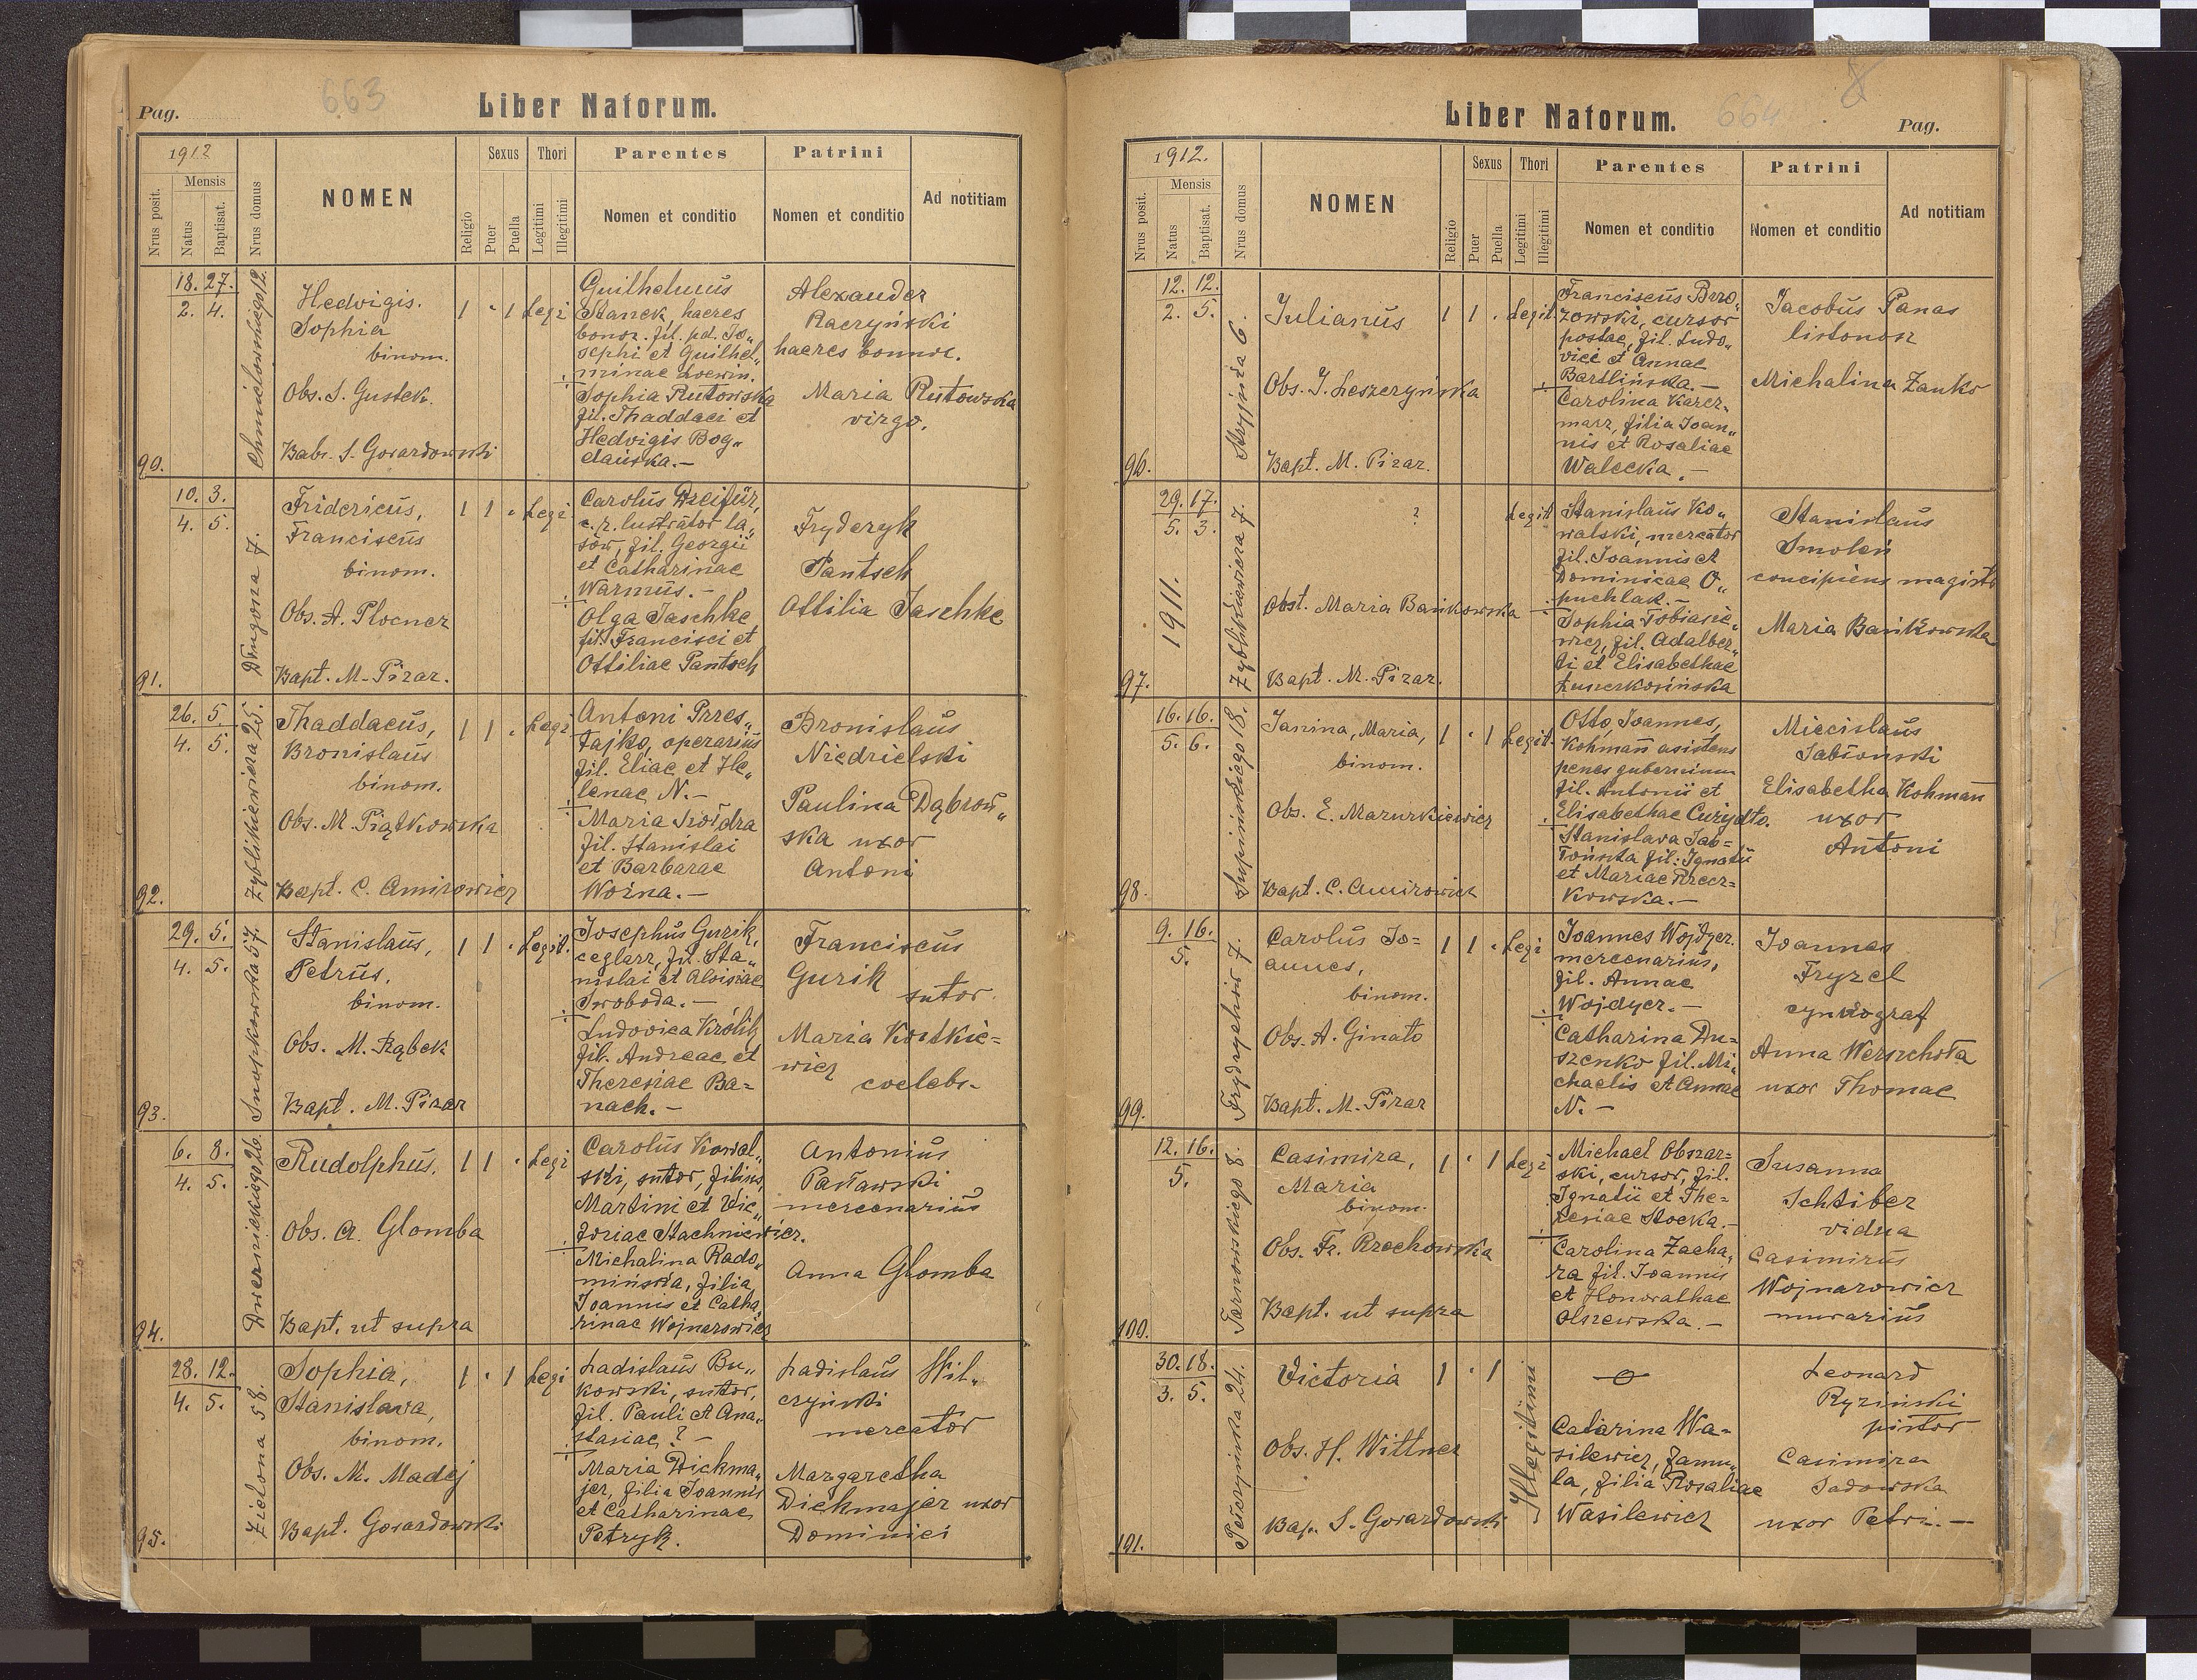 663
Pag.
Liber Natorum.
1912
Nrus posit.
Mensis
Natus
Baptisat.
Nrus domus
NOMEN
Religio
Sexus
Puer
Puella
Thori
Legitimi
Illegitimi
Parentes
Nomen et conditio
Patrini
Nomen et conditio
Ad notitiam
90.
18. 27.
2. 4.
Chmielowskiego 12.
Hedvigis.
Sophia
binom.
Obs. S. Gustek.
Bab. S. Gorardowski
1 · 1 Legi
Guilhelmus
Stanek, haeres
bonor. fil. pd. Jo„
sephi et Guilhel„
minae Loewin.
Sophia Rutowska
fil. Thaddaei et
Hedvigis Bog„
dańska.—
Alexander
Raczyński
haeres bonor.
Maria Rutowska
virgo.
91.
10. 3.
4. 5.
Długosza 7.
Fridericus,
Franciscus
binom.
Obs. A. Plocner
Bapt. M. Pizar.
1 1 · Legi
Carolus Dreifür,
c. r. lustrator la„
sów, fil. Georgii
et Catharinae
Warmus.—
Olga Jaschke
fil. Francisci et
Ottiliae Pantsch
Fryderyk
Pantsch
Ottilia Jaschke
92.
26. 5.
4. 5.
Zyblikiewicza 25.
Thaddaeus,
Bronislaus
binom.
Obs. M. Piątkowska
Bapt. C. Amirowicz
1 1 · Legi
Antoni Przes„
tajko, operarius
fil. Eliae et He„
lenae N.—
Maria Szołdra
fil. Stanislai
et Barbarae
Woźna.—
Bronislaus
Niedzielski
Paulina Dąbrow„
ska uxor
Antoni
93.
29. 5.
4. 5.
Snopkowska 57.
Stanislaus,
Petrus.
binom.
Obs. M. Rąbek
Bapt. M. Pizar
1 1 · Legit.
Josephus Guzik,
ceglarz, fil. Sta„
nislai et Aloisiae
Swoboda.—
Ludovica Królik
fil. Andreae et
Theresiae Ba=
nach.—
Franciscus
Guzik
sutor.
Maria Kostkie=
wicz
coelebs.
94.
6. 8.
4. 5.
Dwernickiego 26.
Rudolphus.
Obs. A. Glomba
Bapt. ut supra
1 1 · Legi
Carolus Kowal„
ski, sutor, filius
Martini et Vic„
toriae Stachniewicz.
Michalina Rado„
mińska, filia
Joannis et Catha„
rinae Wojnarowicz
Antonius
Panawski
mercenarius
Anna Glomba
95.
28. 12.
4. 5.
Zielona 58.
Sophia,
Stanislava,
binom.
Obs. M. Madej
Bapt. Gorardowski
1 · 1 Legi
Ladislaus Bu„
kowski, sutor,
fil. Pauli et Ana„
stasiae ? —
Maria Dickma„
jer, filia Joannis
et Catharinae
Petryk.
Ladislaus Wil„
czyński
mercator
Margaretha
Dickmajer uxor
Dominici
Liber Natorum.
664
Pag.
1912.
Nrus posit.
Mensis
Natus
Baptisat.
Nrus domus
NOMEN
Religio
Sexus
Puer
Puella
Thori
Legitimi
Illegitimi
Parentes
Nomen et conditio
Patrini
Nomen et conditio
Ad notitiam
96.
12. 12.
2. 5.
Stryjska 6.
Julianus
Obs. J. Leszczyńska
Bapt. M. Pizar.
1 1 · Legit.
Franciscus Brzo„
zowski, cursor
postae, fil. Ludo„
vici et Annae
Bartlińska.—
Carolina Karcz„
marz, filia Joan„
nis et Rosaliae
Walecka.—
Jacobus Panas
listonosz
Michalina Zanko
97.
29. 17.
5. 3.
1911.
Zyblikiewicza 7.
?
Obst. Maria Bańkowska
Bapt. M. Pizar.
Legit
Stanislaus Ko„
walski, mercator
fil. Joannis et
Dominicae O„
puchlak.—
Sophia Tobiasie„
wicz, fil. Adalber„
ti et Elisabethae
Stanislaus
Smoleń
concipiens magistr.
Maria Bańkowska
98.
16. 16.
5. 6.
Supińskiego 18.
Janina, Maria,
binom.
Obs. E. Mazurkiewicz
Bapt. C. Amirowicz
1 · 1 Legit.
Otto, Joannes,
Kohmann asistens
penes gubernium
fil. Antonii et
Elisabethae
Stanislava Jab=
łońska fil: Ignatii
et Mariae Rzecz=
kowska.—
Miecislaus
Jabłoński
Elisabetha Kohmann
uxor
Antoni
99.
9. 16.
5.
Frydrychów 7.
Carolus Jo=
annes,
binom.
Obs. A. Ginato
Bapt. M. Pizar
1 1 · Legi
Joannes Wojdyer.
mercenarius,
fil. Annae
Wojdyer.—
Catharina Du=
szenko fil. Mi„
chaelis et Annae
N.—
Joannes
Fryzel
cynkograf
Anna Werszchoła
uxor Thomae
100.
12. 16.
5.
Tarnowskiego 8.
Casimira,
Maria
binom.
Obs. Fr. Rzechowska
Bapt. ut supra
1 · 1 Legi
Michael Obszar=
ski, cursor, fil.
Ignatii et The=
resiae Stocka.—
Carolina Zacha„
ra fil. Joannis
et Honorathae
Olszewska.—
Susanna
Schtiber
vidua
Casimirus
Wojnarowicz
murarius
101.
30. 18.
3. 5.
24.
Victoria
Obs. H. Wittner
Bap. S. Gorardowski
1 · 1
Illegitimi
—o—
Catarina Wa=
silewicz, famu„
la, filia Rosaliae
Wasilewicz
Leonard
Ryziński
pistor
Casimira
Sadowska
uxor Petri.—